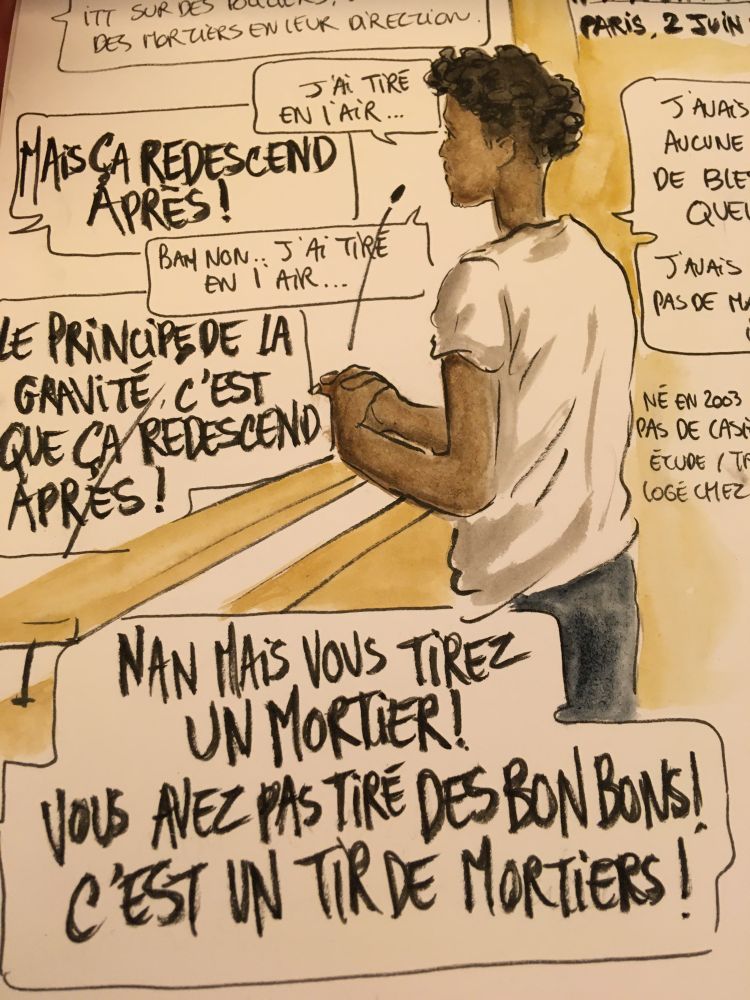 ITT SUR DES
DES MORTIERS EN LEUR DIRECTION.
PARIS, 2 JUIN
J'AI TIRÉ
EN L'AIR...
MAIS ÇA REDESCEND
APRÈS !
BAH NON.. J'AI TIRÉ
EN L'AIR...
LE PRINCIPE DE LA
GRAVITÉ, C'EST
QUE ÇA REDESCEND
APRÈS !
J'AVAIS
AUCUNE
DE BLE
QUEL
J'AVAIS
PAS DE MA
NÉ EN 2003
PAS DE CASI
ÉTUDE / TR
LOGÉ CHEZ
NAN MAIS VOUS TIREZ
UN MORTIER !
VOUS AVEZ PAS TIRÉ DES BONBONS !
C'EST UN TIR DE MORTIERS !